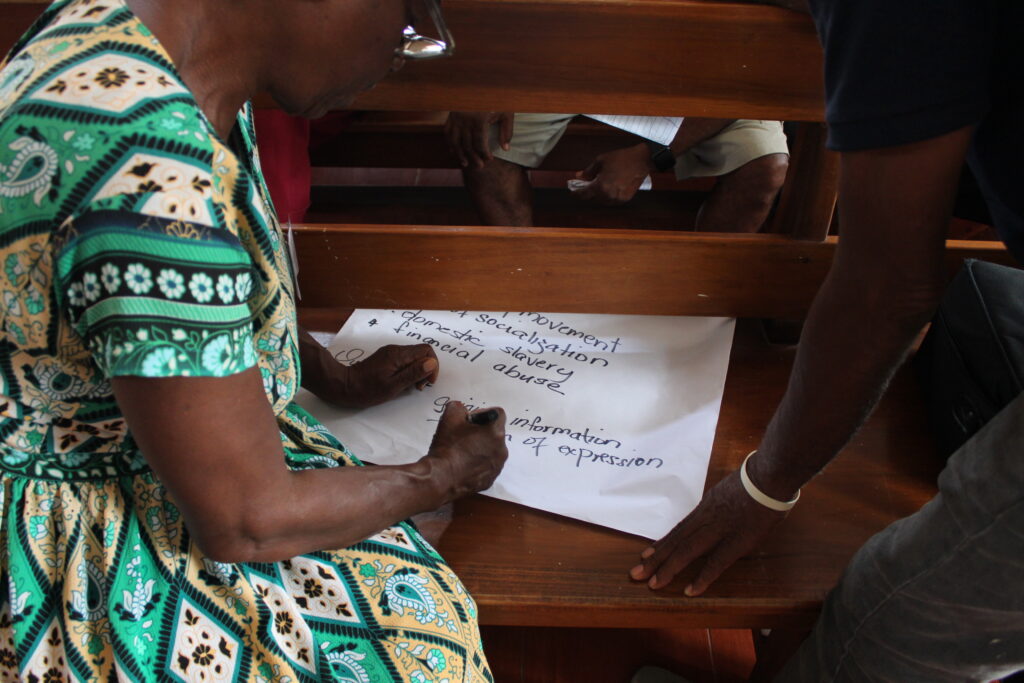 movement
of socialization
domestic slavery
financial abuse
information
of expression